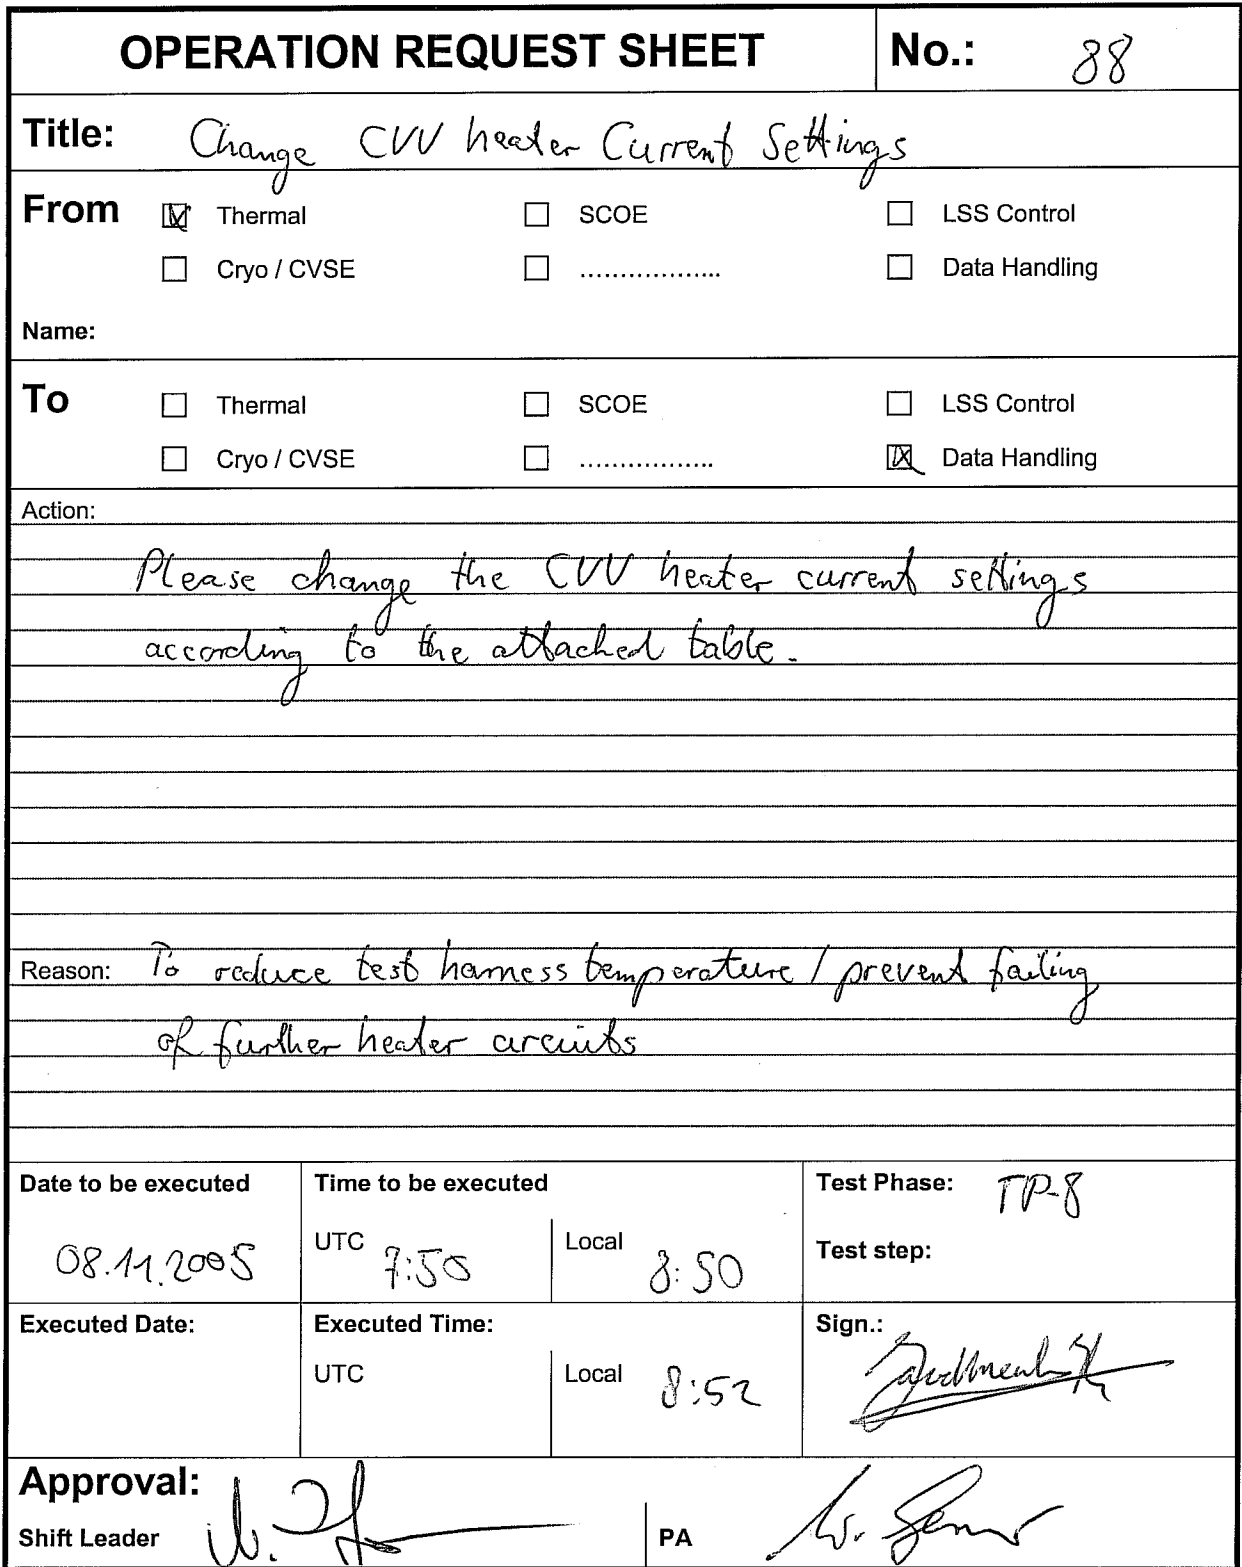 OPERATION REQUEST SHEET No.: 88
Title: Change CVV heater Current Settings
From Thermal SCOE LSS Control
Cryo / CVSE .................. Data Handling
Name:
To Thermal SCOE LSS Control
Cryo / CVSE ................. Data Handling
Action:
Please change the CVV heater current settings
according to the attached table.
Reason: To reduce test harness temperature / prevent failing
of further heater circuits
Date to be executed Time to be executed Test Phase: TP-8
08.11.2005 UTC 7:50 Local 8:50 Test step:
Executed Date: Executed Time: Sign.:
UTC Local 8:52
Approval:
Shift Leader PA